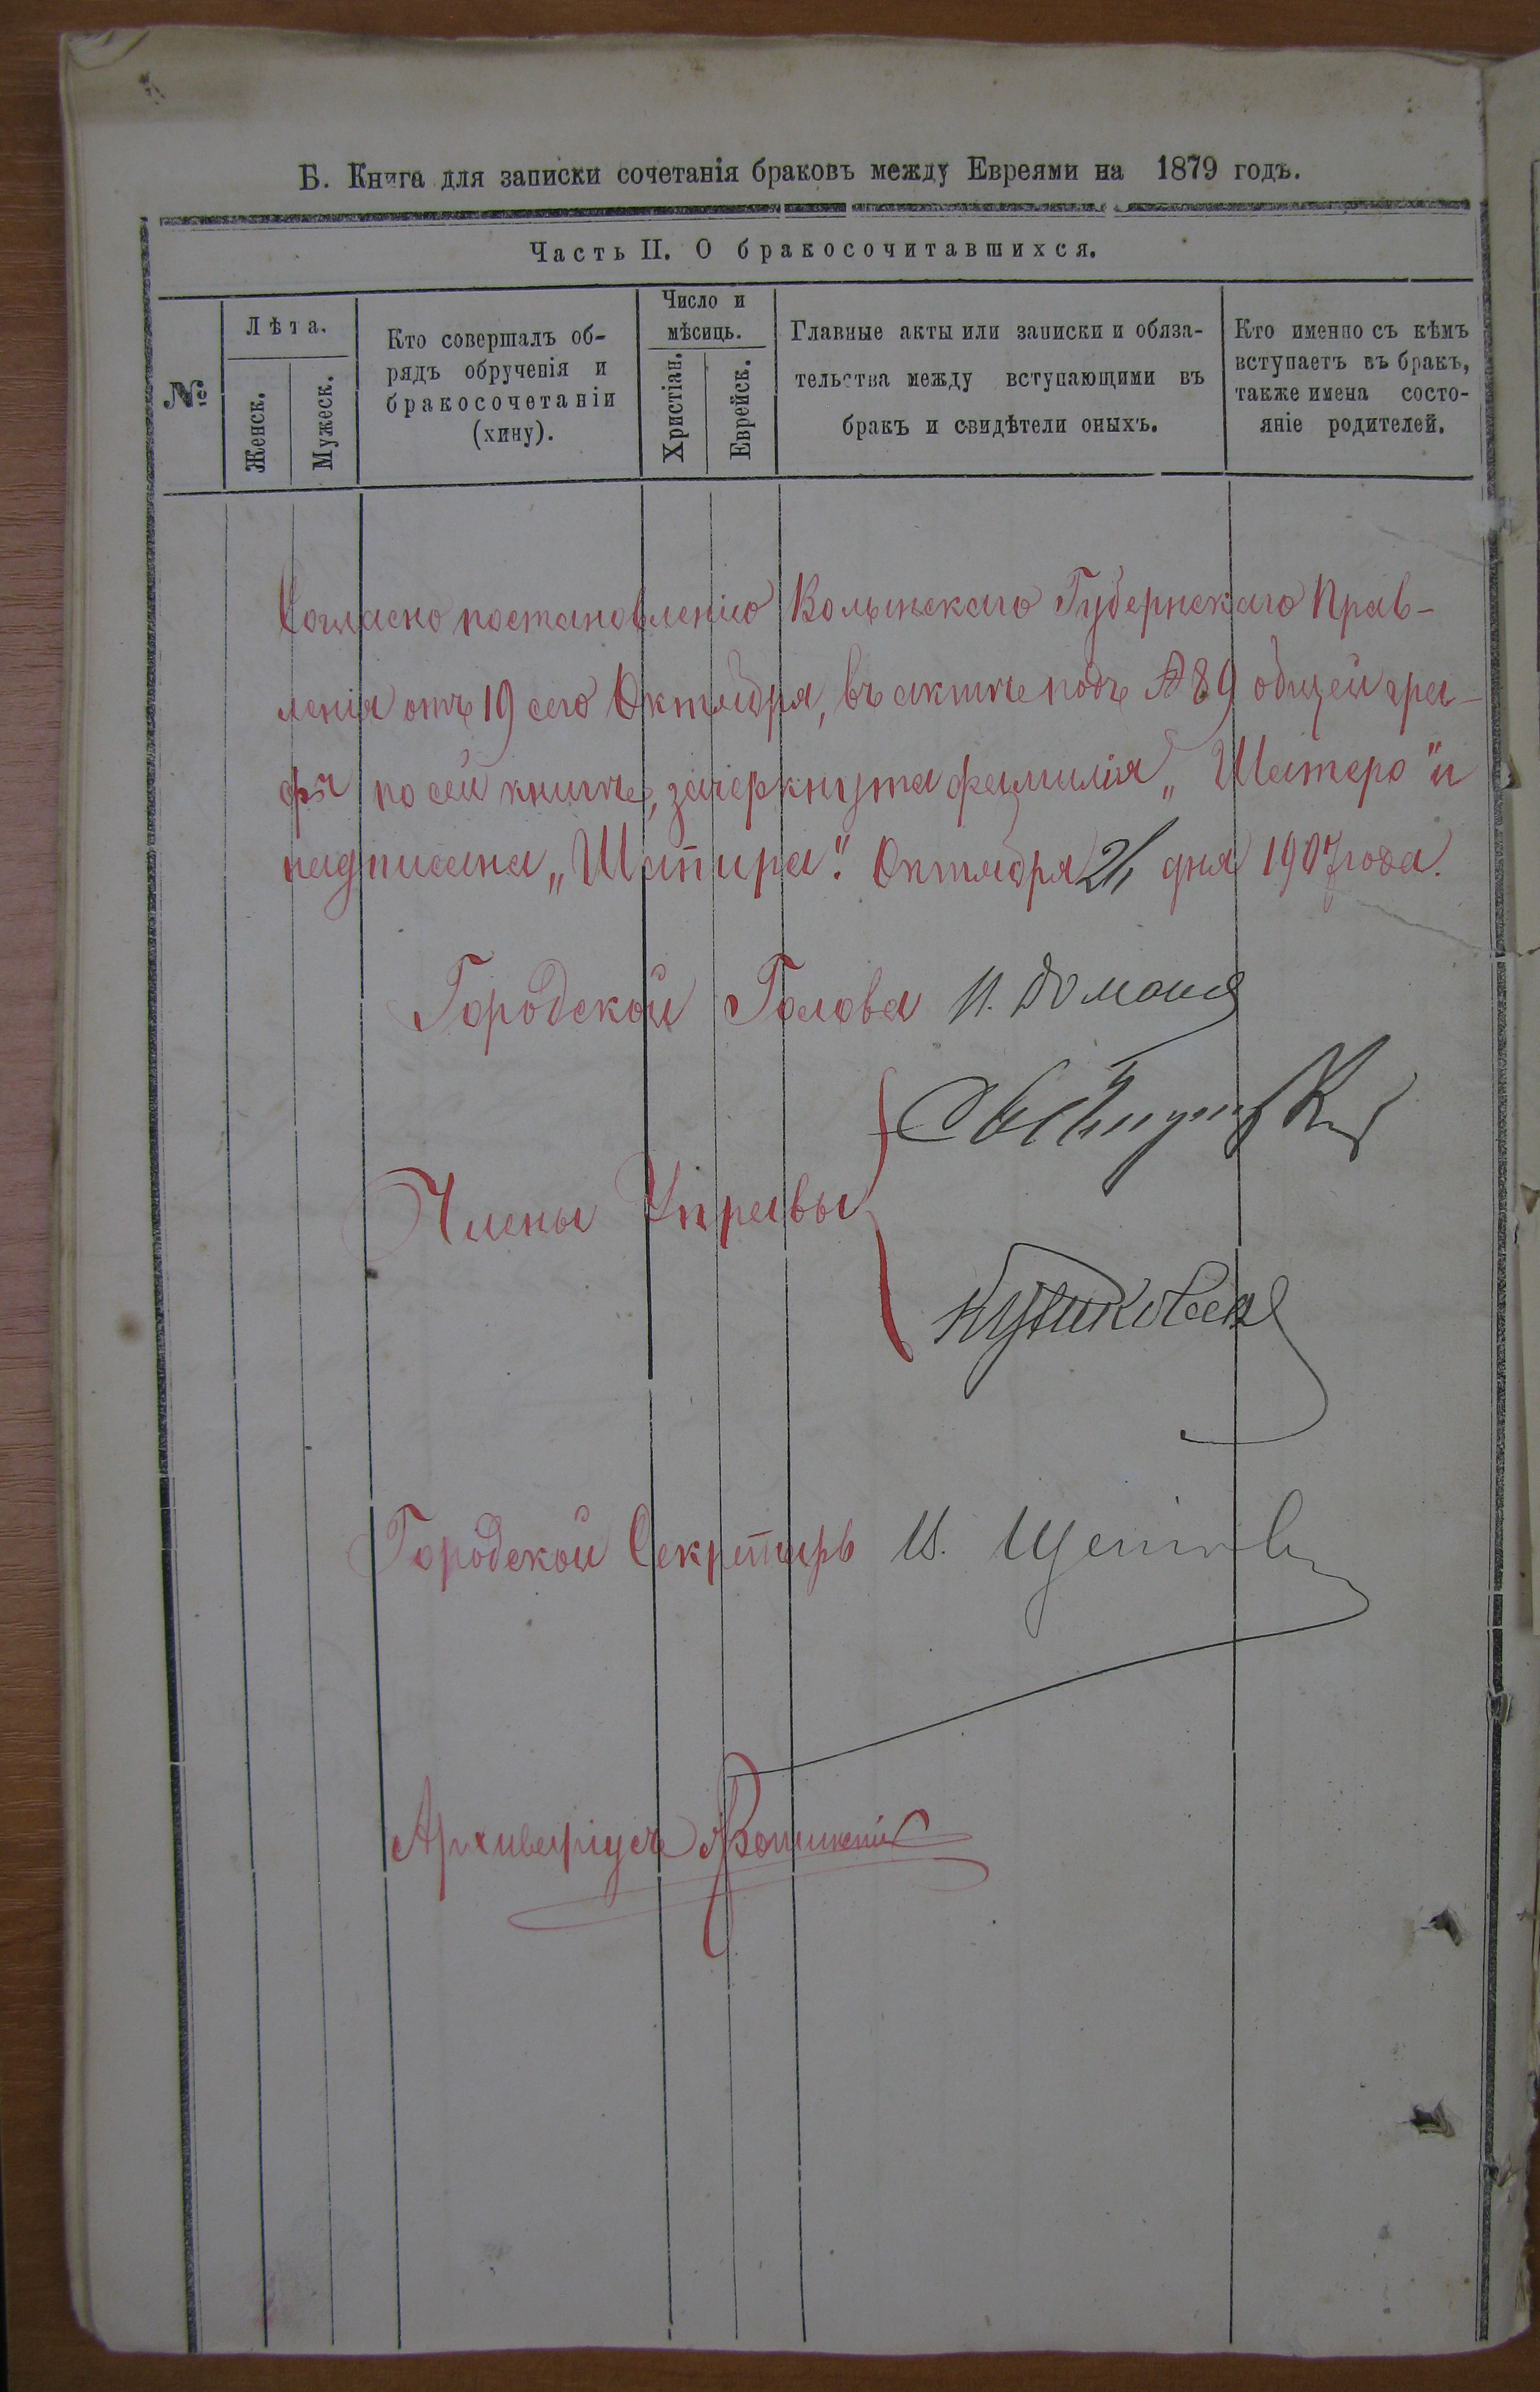 Б. Книга для записки сочетанія браковъ между Евреями на 1879 годъ.
Часть II. О бракосочитавшихся.
№
Лѣта.
Женск.
Мужеск.
Кто совершалъ об-
рядъ обрученія и
бракосочетаніи
(хину).
Число и
мѣсяць.
Христіан.
Еврейск.
Главные акты или записки и обяза-
тельства между вступающими въ
бракъ и свидѣтели оныхъ.
Кто именно съ кѣмъ
вступаетъ въ бракъ,
также имена состо-
яніе родителей.
Согласно постановленію Волынскаго Губернскаго Прав-
ленія отъ 19 сего Октября, въ актѣ подъ № 89 общей гра-
фѣ по сей книгѣ, зачеркнута фамилія „Шатеро" и
надписана „Шапира". Октября 24 дня 1907 года.
Городской Голова
Члены Управы
Городской Секретарь И.
Архиваріусъ